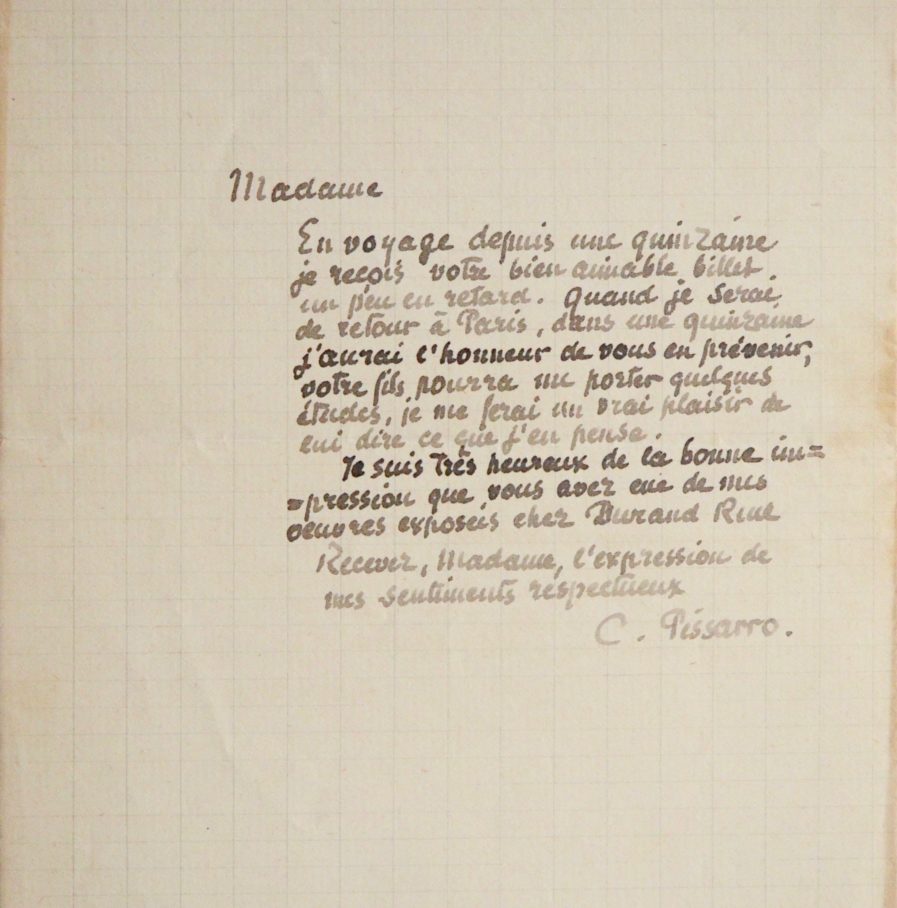 Madame
En voyage depuis une quinzaine
je reçois votre bien aimable billet
un peu en retard. Quand je serai
de retour à Paris, dans une quinzaine
j'aurai l'honneur de vous en prévenir,
votre fils pourra me porter quelques
études, je me ferai un vrai plaisir de
lui dire ce que j'en pense.
Je suis très heureux de la bonne im=
=pression que vous avez eue de mes
oeuvres exposeis chez Durand Ruel
Recevez, Madame, l'expression de
mes sentiments respectueux
C. Pissarro.